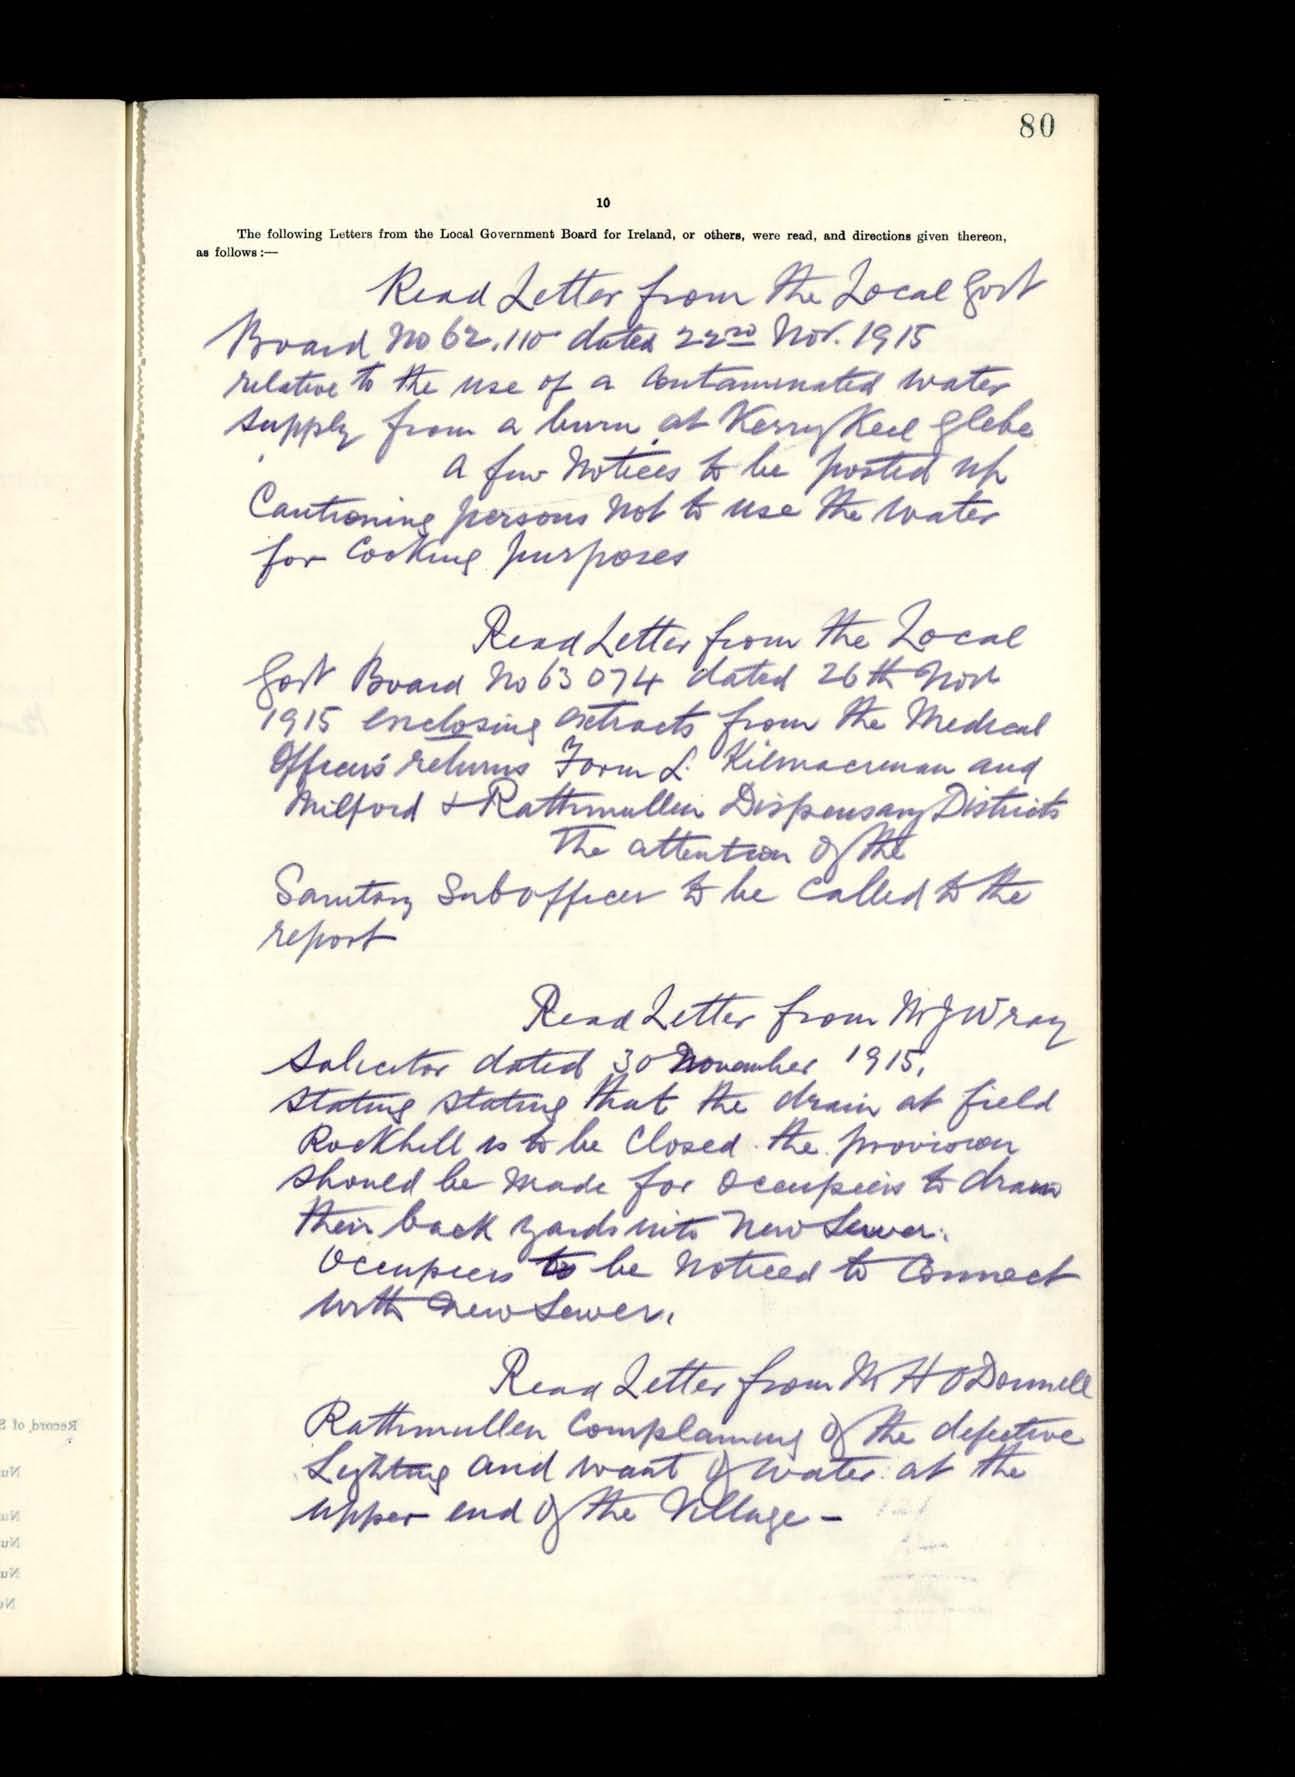 80
10
The following Letters from the Local Government Board for Ireland, or others, were read, and directions given thereon,
as follows :—
Read Letter from the Local Govt
Board No 62,110 dated 22nd Nov. 1915
relative to the use of a contaminated water
supply from a burn at Kerrykeel Glebe
A few notices to be posted up
Cautioning persons not to use the water
for Cooking purposes
Read Letter from the Local
Govt Board No 63074 dated 26th Nov
1915 enclosing extracts from the Medical
Officers returns Form L. Kilmacrenan and
Milford & Rathmullen Dispensary Districts
The attention of the
Sanitary Sub officer to be called to the
report
Read Letter from Mr J Wray
Solicitor dated 30 November 1915,
stating stating that the drain at field
Rockhill is to be Closed. the provision
should be made for occupiers to drain
their back yards into New Sewer.
Occupiers to be noticed to Connect
with new Sewer.
Read Letter from Mr H O'Donnell
Rathmullen Complaining of the defective
Lighting and want of water at the
upper end of the Village -
Record of
Nu
Nu
Nu
Nu